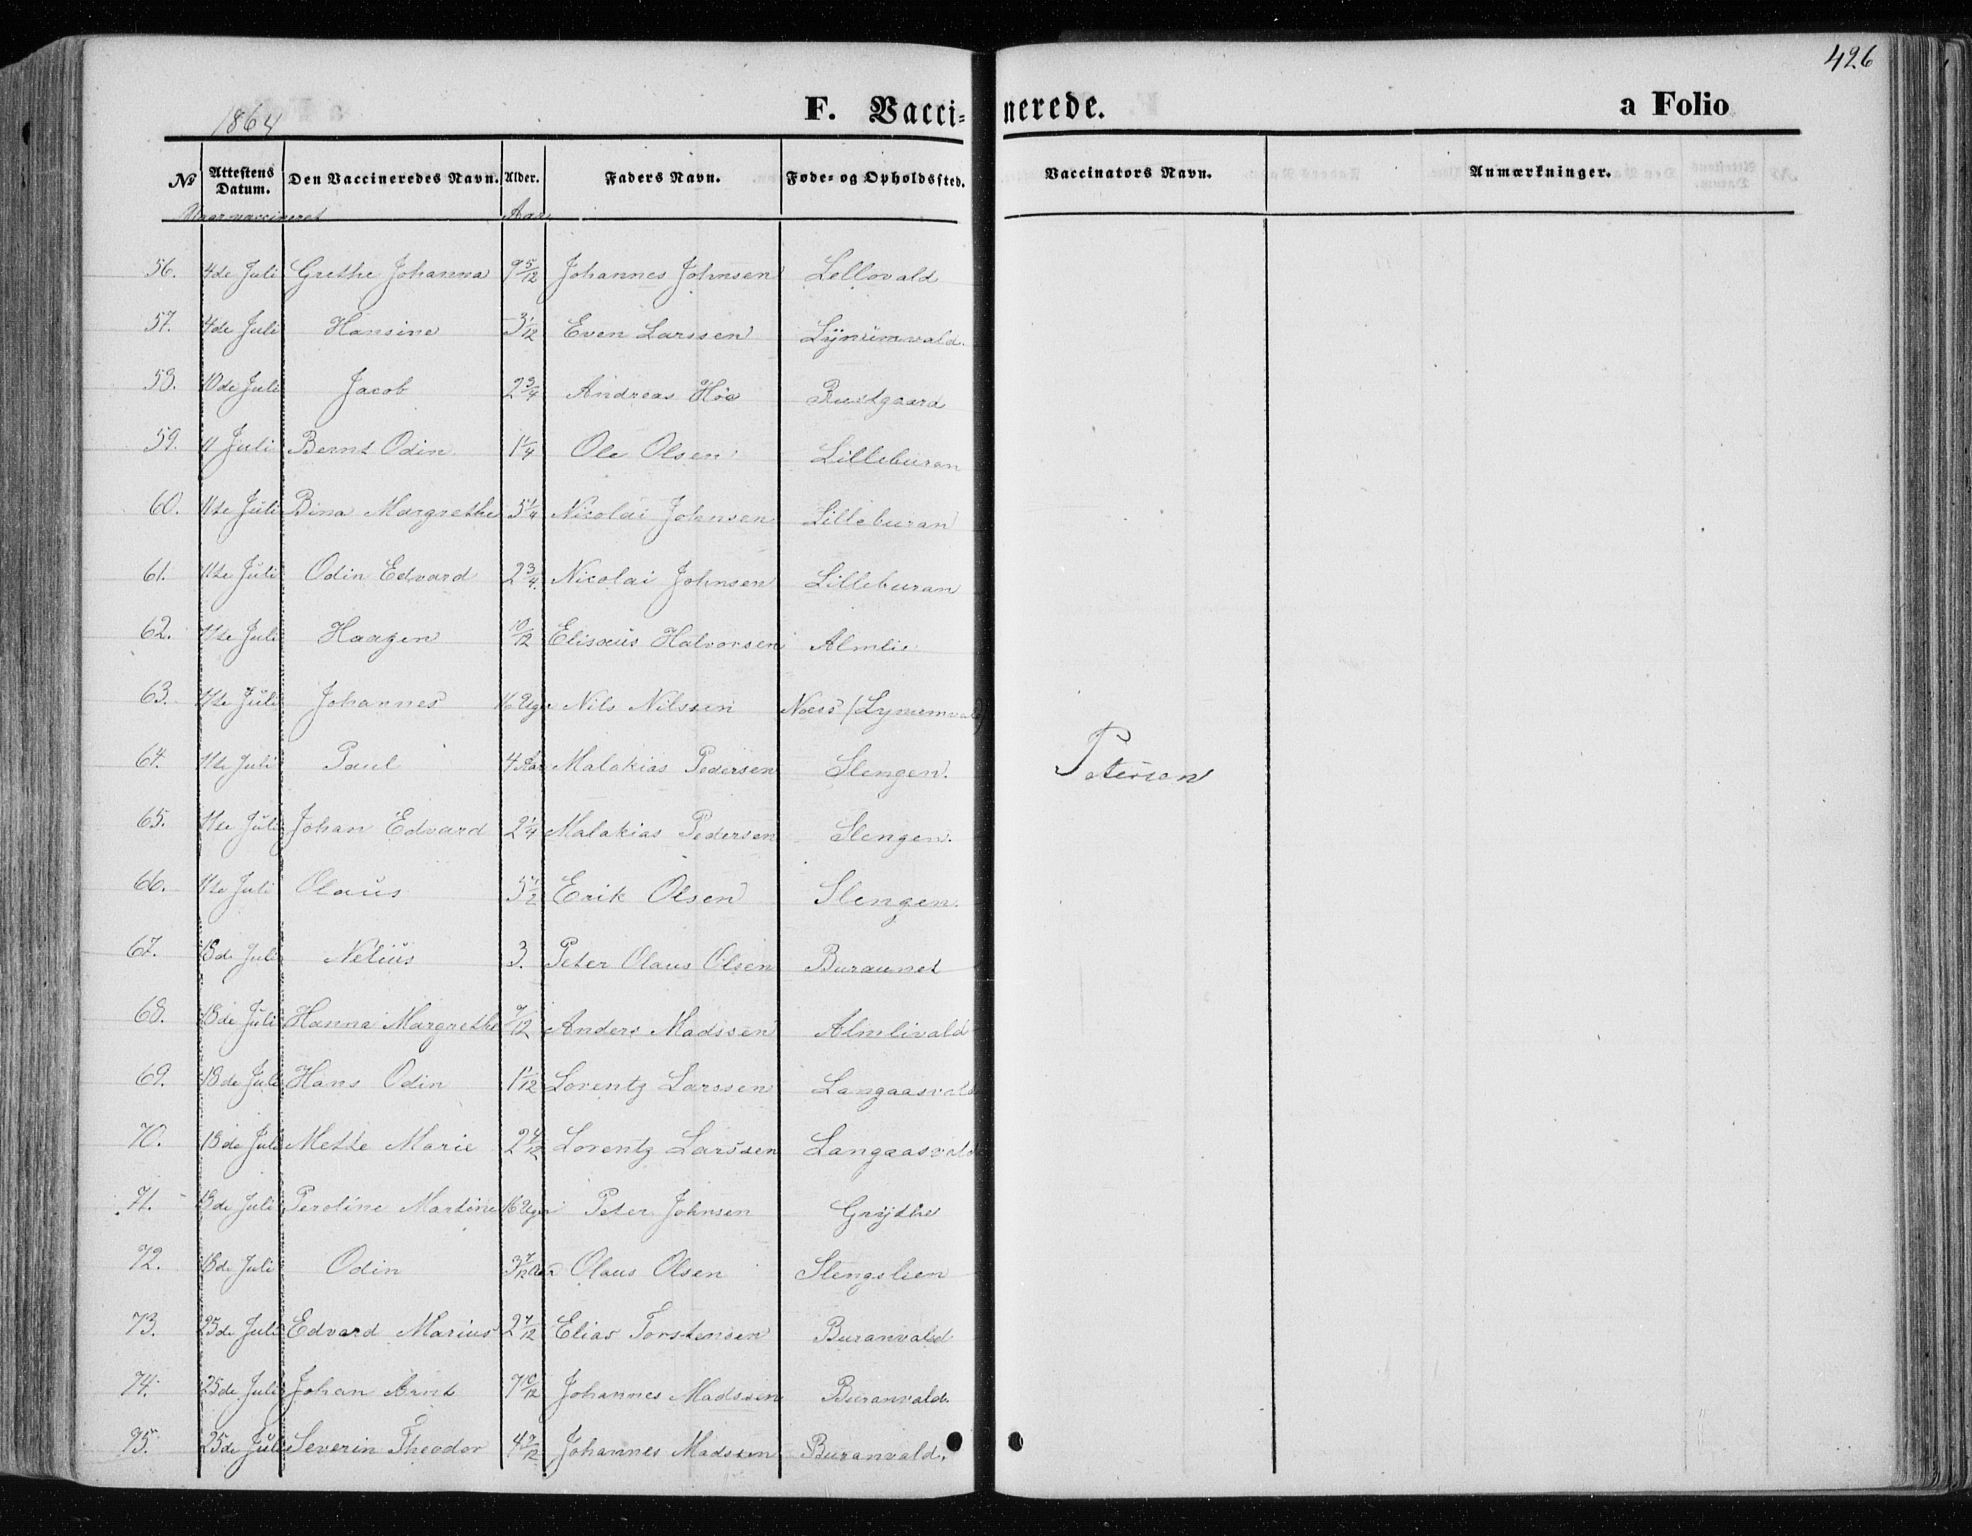 426
1864
F. Vaccinerede.
a Folio
No Attestens Datum. Den Vaccineredes Navn. Alder. Faders Navn. Føde- og Opholdssted. Vaccinators Navn. Anmærkninger.
Naar vaccineret Aar
56. 4de Juli Grethe Johanna 9 5/12 Johannes Johnsen Lellovald
57. 4de Juli Hansine 3 1/12 Even Larssen Lÿnümvald.
58. 10de Juli Jacob 2 3/4 Andreas Høe Rustgaard
59. 11 Juli Bernt Odin 1 1/4 Ole Olsen Lilleburan
60. 11te Juli Bina Margrethe 5 1/4 Nicolai Johnsen Lilleburan
61. 11te Juli Odin Edvard 2 3/4 Nicolai Johnsen Lilleburan
62. 11te Juli Haagen 10/12 Elisæus Halvorsen Almlie
63. 11te Juli Johannes 16 Uger Nils Nilssen Næss (Lynumvald)
64. 11te Juli Paul 4 Aar Malakias Pedersen Slengen.
65. 11te Juli Johan Edvard 2 1/4 Malakias Pedersen Slengen.
66. 11te Juli Olaus 5 1/2 Erik Olsen Slengen.
67. 18de Juli Nelius 3. Peter Olaus Olsen Buraunet
68. 18de Juli Hanna Margrethe 7/12 Anders Madssen Almlivald
69. 18de Juli Hans Odin 1 1/12 Lorentz Larssen Langaasvald
70. 18de Juli Mette Marie 2 4/12 Lorentz Larssen Langaasvald
71. 18de Juli Peroline Martine 16 Uger Peter Johnsen Grÿthe
72. 18de Juli Odin 3 7/12 Aar Olaus Olsen Slengslien
73. 25de Juli Edvard Marius 2 7/12 Elias Torstensen Buranvald
74. 25de Juli Johan Arnt 7 10/12 Johannes Madssen Buranvald.
75. 25de Juli Severin Theodor 4 9/12 Johannes Madssen Buranvald.
Petersen